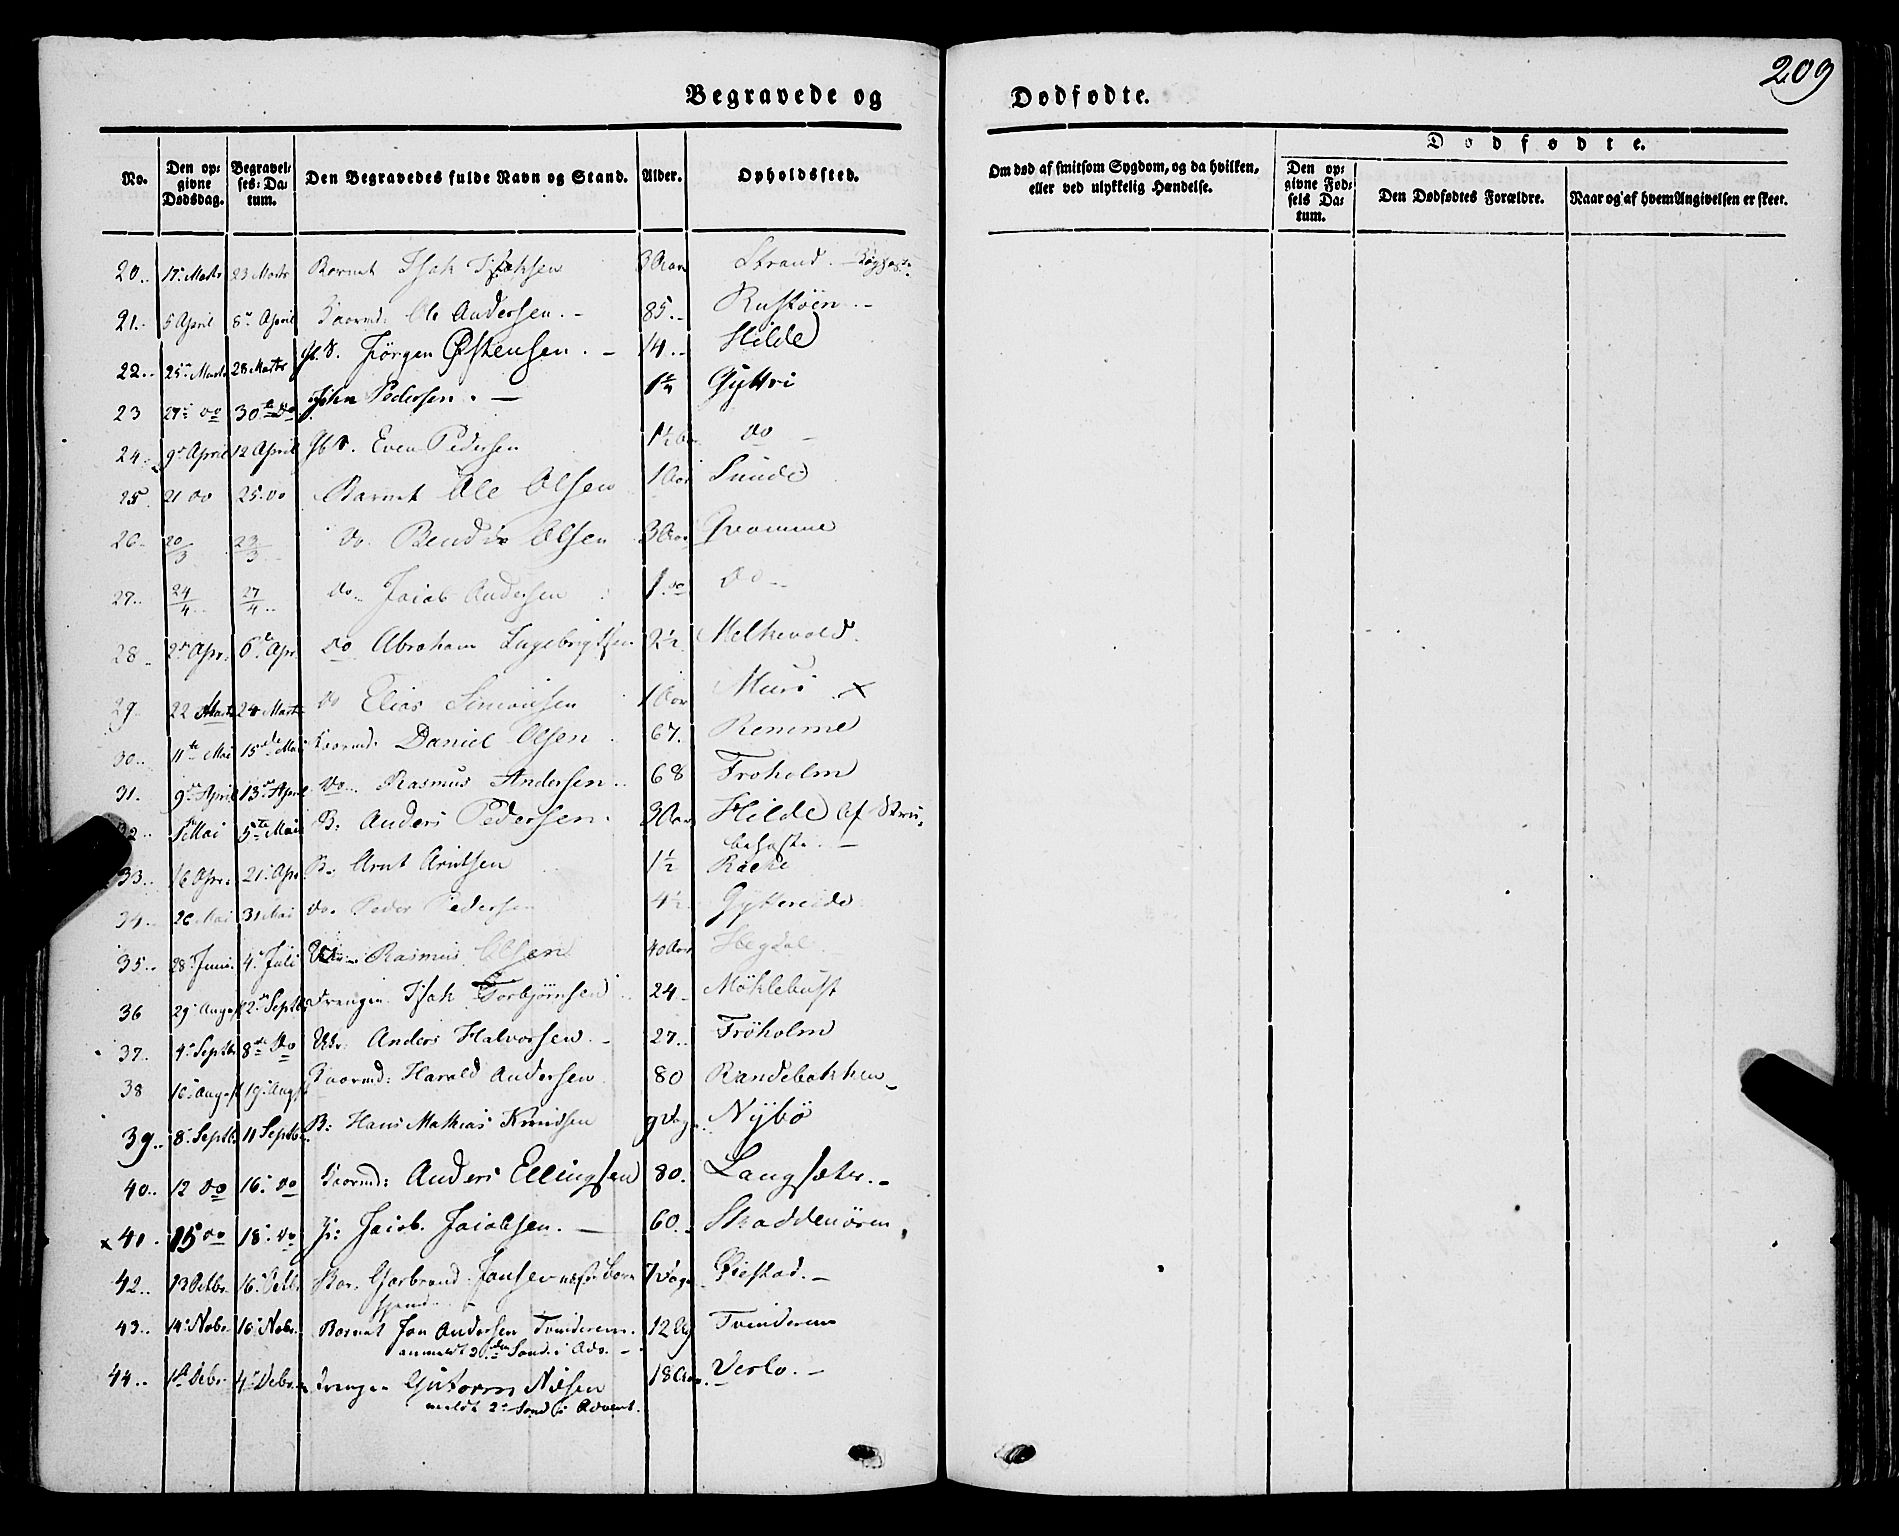 209
Begravede og Dødfødte.
No. Den opgivne Dødsdag. Begravelses-Datum. Den Begravedes fulde Navn og Stand. Alder. Opholdssted. Om død af smitsom Sygdom, og da hvilken, eller ved ulykkelig Hændelse. Dødfødte. Den opgivne Fødsels Datum. Den Dødfødtes Forældre. Naar og af hvem Angivelsen er skeet.
20.. 17. Marts 23 Marts Barnet Isak Isaksen 3 Aar Strand.
21.. 5 April 8 April Ole Andersen. 85.. Rustøen
22.. 25 Marts 28 Marts Jørgen Østensen. 14.. Hilde
23 27 do 30te do John Pedersen. Gyttri
24. 9 April 12 April Even Pedersen 1½ do
25. 21 do 25. do Barnet Ole Olsen 1 Aar Sunde
26. 20/3 23/3 do. Bendix Olsen 3 Aar Qvamme
27.. 24/4 27/4 do. Jacob Andersen 1. do do
28.. 2 Apr. 6te Apr. do Abraham Ingebrigtsen 2½ Melkevold.
29. 22 Marts 24 Marts do Elias Simonsen 1 Aar Muri x
30.. 11te Mai 15de Mai Daniel Olsen 67. Remme
31. 9 April 13 April do. Rasmus Andersen.. 68 Froholm
32.. Mai 5te Mai B: Anders Pedersen. 3 Aar Hilde af Stru-
behoste.
33.. 16 Apr. 21 Apr. B. Arnt Arntsen 1½ Rake
34.. 26 Mai 31 Mai do. Peder Pedersen 4½ Gyttereide
35.. 28 Juni. 4. Juli Rasmus Olsen 40 Aar Hegdal
36 29 August 2 Septbr Drengen Isak Torbjørnsen 24 Møklebust
37.. 4 Septbr 8de do Anders Halvorsen. 27.. Frøholm
38 16 August 19 August Harald Andersen. 80 Randebakken
39.. 8 Septbr 11 Septbr B: Hans Mathias Knudsen 9 Dage Nybø
40.. 12 do 16. do Anders Ellingsen 80. Langsæter.
x 41. 15 do 18. do Jacob Jacobsen. 60.. Skaddenøren
42.. 13 Octbr. 16. Octbr. Gjerbrand Jansen 7 Dage Øiestad.
43.. 14 Nobr. 16. Nobr. Barnet Jan Andersen Tvinderem. 12 Tvinderem
anmeldt 2den Sønd. i Adv.
44.. 1ste Debr. 4 Debr. Drengen Guttorm Nilsen 18 Aar. Verlo.
meldt 2 Sønd i Advent.